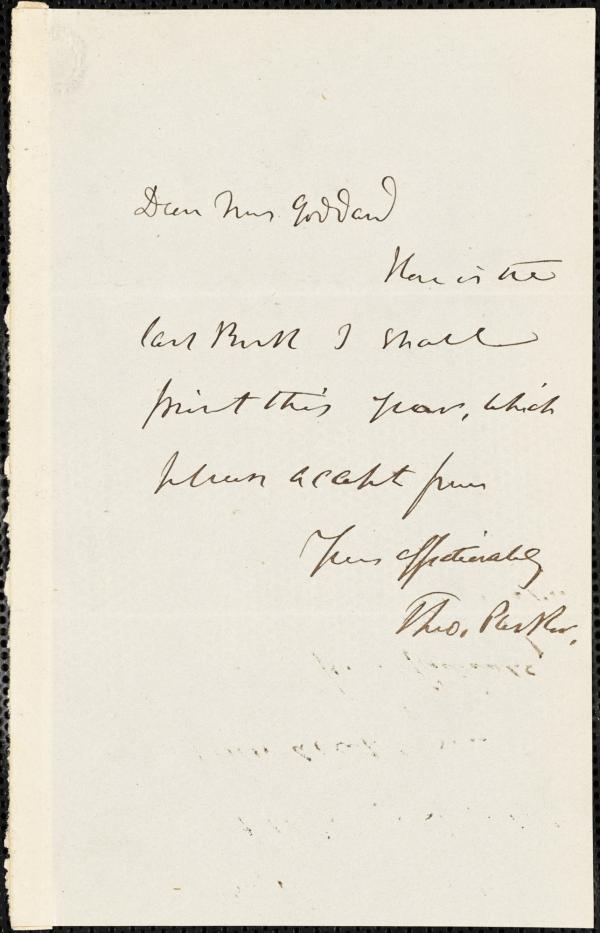 Dear Mrs Goddard
Here is the
last Book I shall
print this year, which
please accept from
Yours affectionately
Theo. Parker.